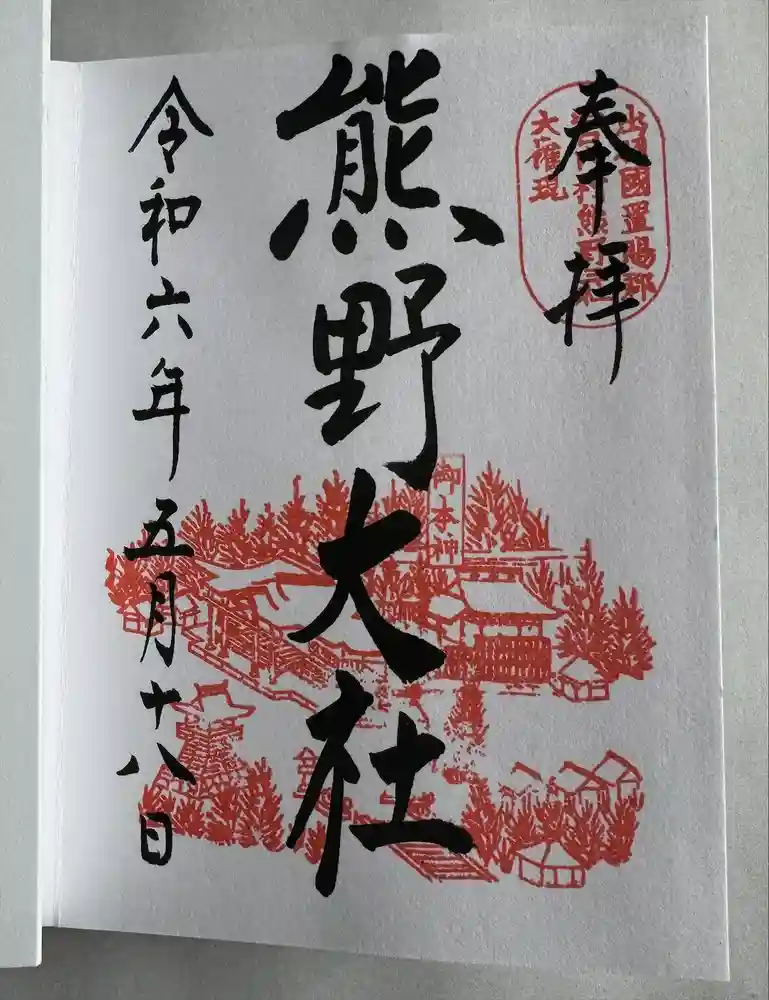 奉拝
出羽國置賜郡
村熊野社
大権現
熊野大社
御本神
令和六年五月十八日